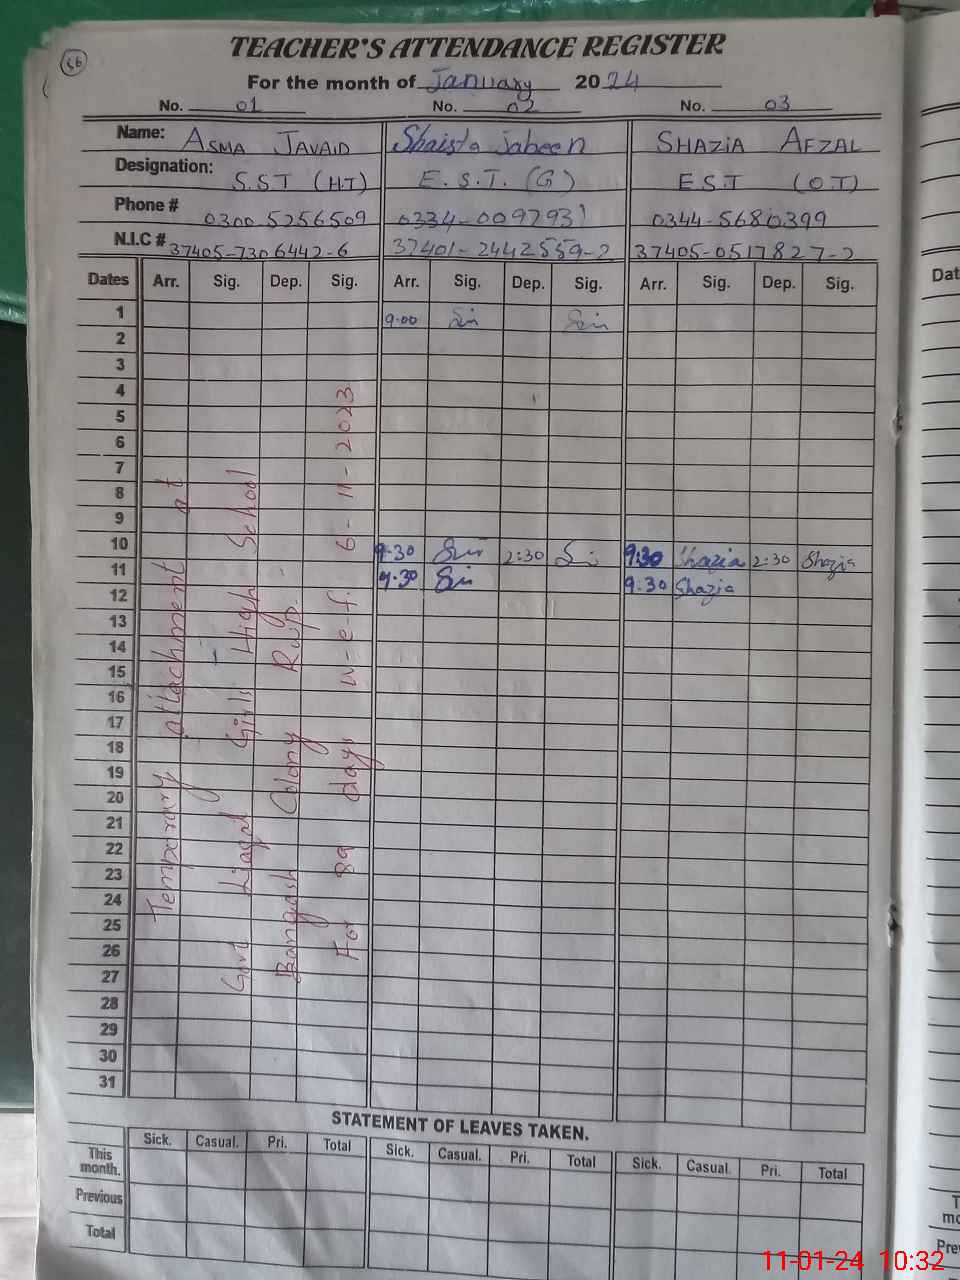 56
TEACHER'S ATTENDANCE REGISTER
For the month of January 2024
No. 01 No. 02 No. 03
Name: ASMA JAVAID Shaista Jabeen SHAZIA AFZAL
Designation: S.ST (H.T) E.S.T.(G) EST (O.T)
Phone # 0300 5256509 0334-0097931 0344-5680399
N.I.C # 37405-7306442-6 37401-2442559-2 37405-0517827-2
Dates Arr. Sig. Dep. Sig. Arr. Sig. Dep. Sig. Arr. Sig. Dep. Sig.
1 9-00
2
3
4
5
6
7
8
9
10 9-30 2:30 9:30 Shazia 2:30 Shazia
11 9.30 9:30 Shazia
12
13
14
15
16
17
18
19
20
21
22
23
24
25
26
27
28
29
30
31
Temporary attachment at
Govt Liaqat Girls High School
Bangash Colony Rwp.
For 89 days w-e-f. 6-11-2023
STATEMENT OF LEAVES TAKEN.
Sick. Casual. Pri. Total Sick. Casual. Pri. Total Sick. Casual. Pri. Total
This month.
Previous
Total
Dat
Prev
11-01-24 10:32